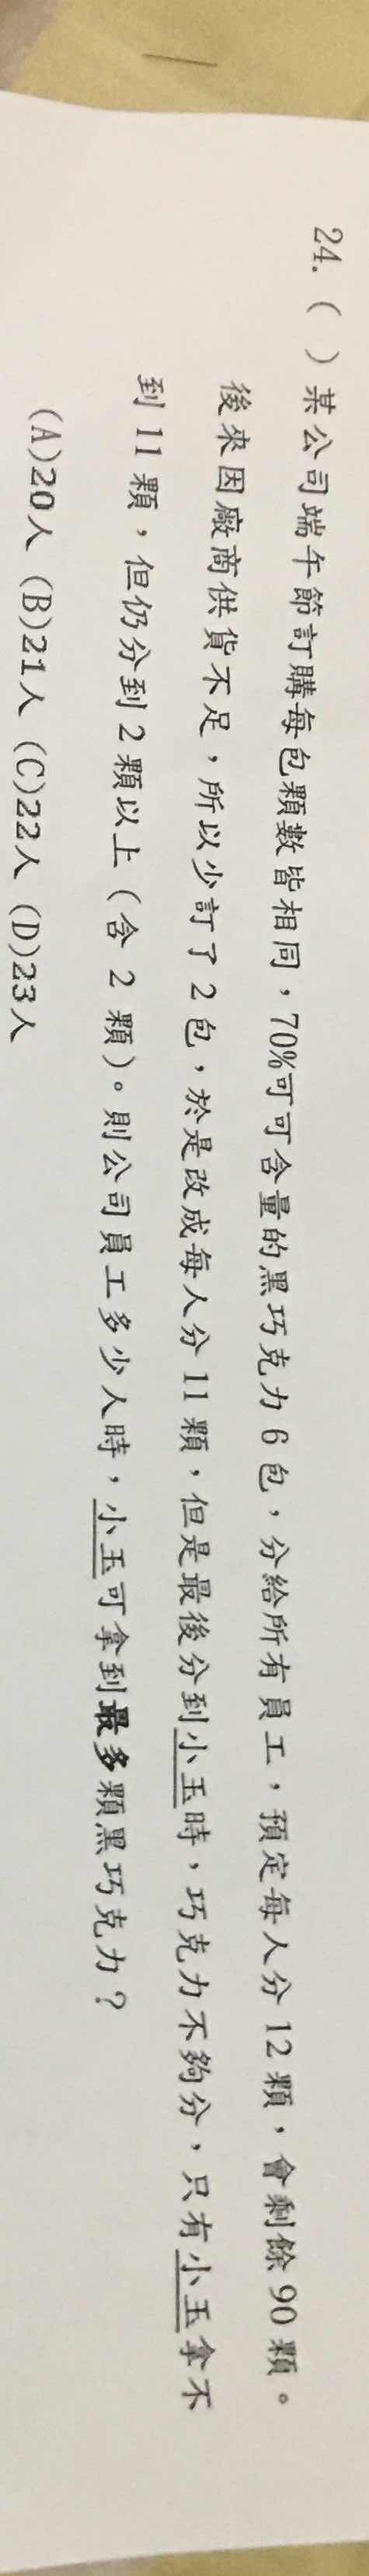 24. (  ) 某公司端午節訂購每包顆數皆相同，70%可可含量的黑巧克力 6 包，分給所有員工，預定每人分 12 顆，會剩餘 90 顆。
後來因廠商供貨不足，所以少訂了 2 包，於是改成每人分 11 顆，但是最後分到小玉時，巧克力不夠分，只有小玉拿不
到 11 顆，但仍分到 2 顆以上 (含 2 顆)。則公司員工多少人時，小玉可拿到最多顆黑巧克力？
(A)20人 (B)21人 (C)22人 (D)23人